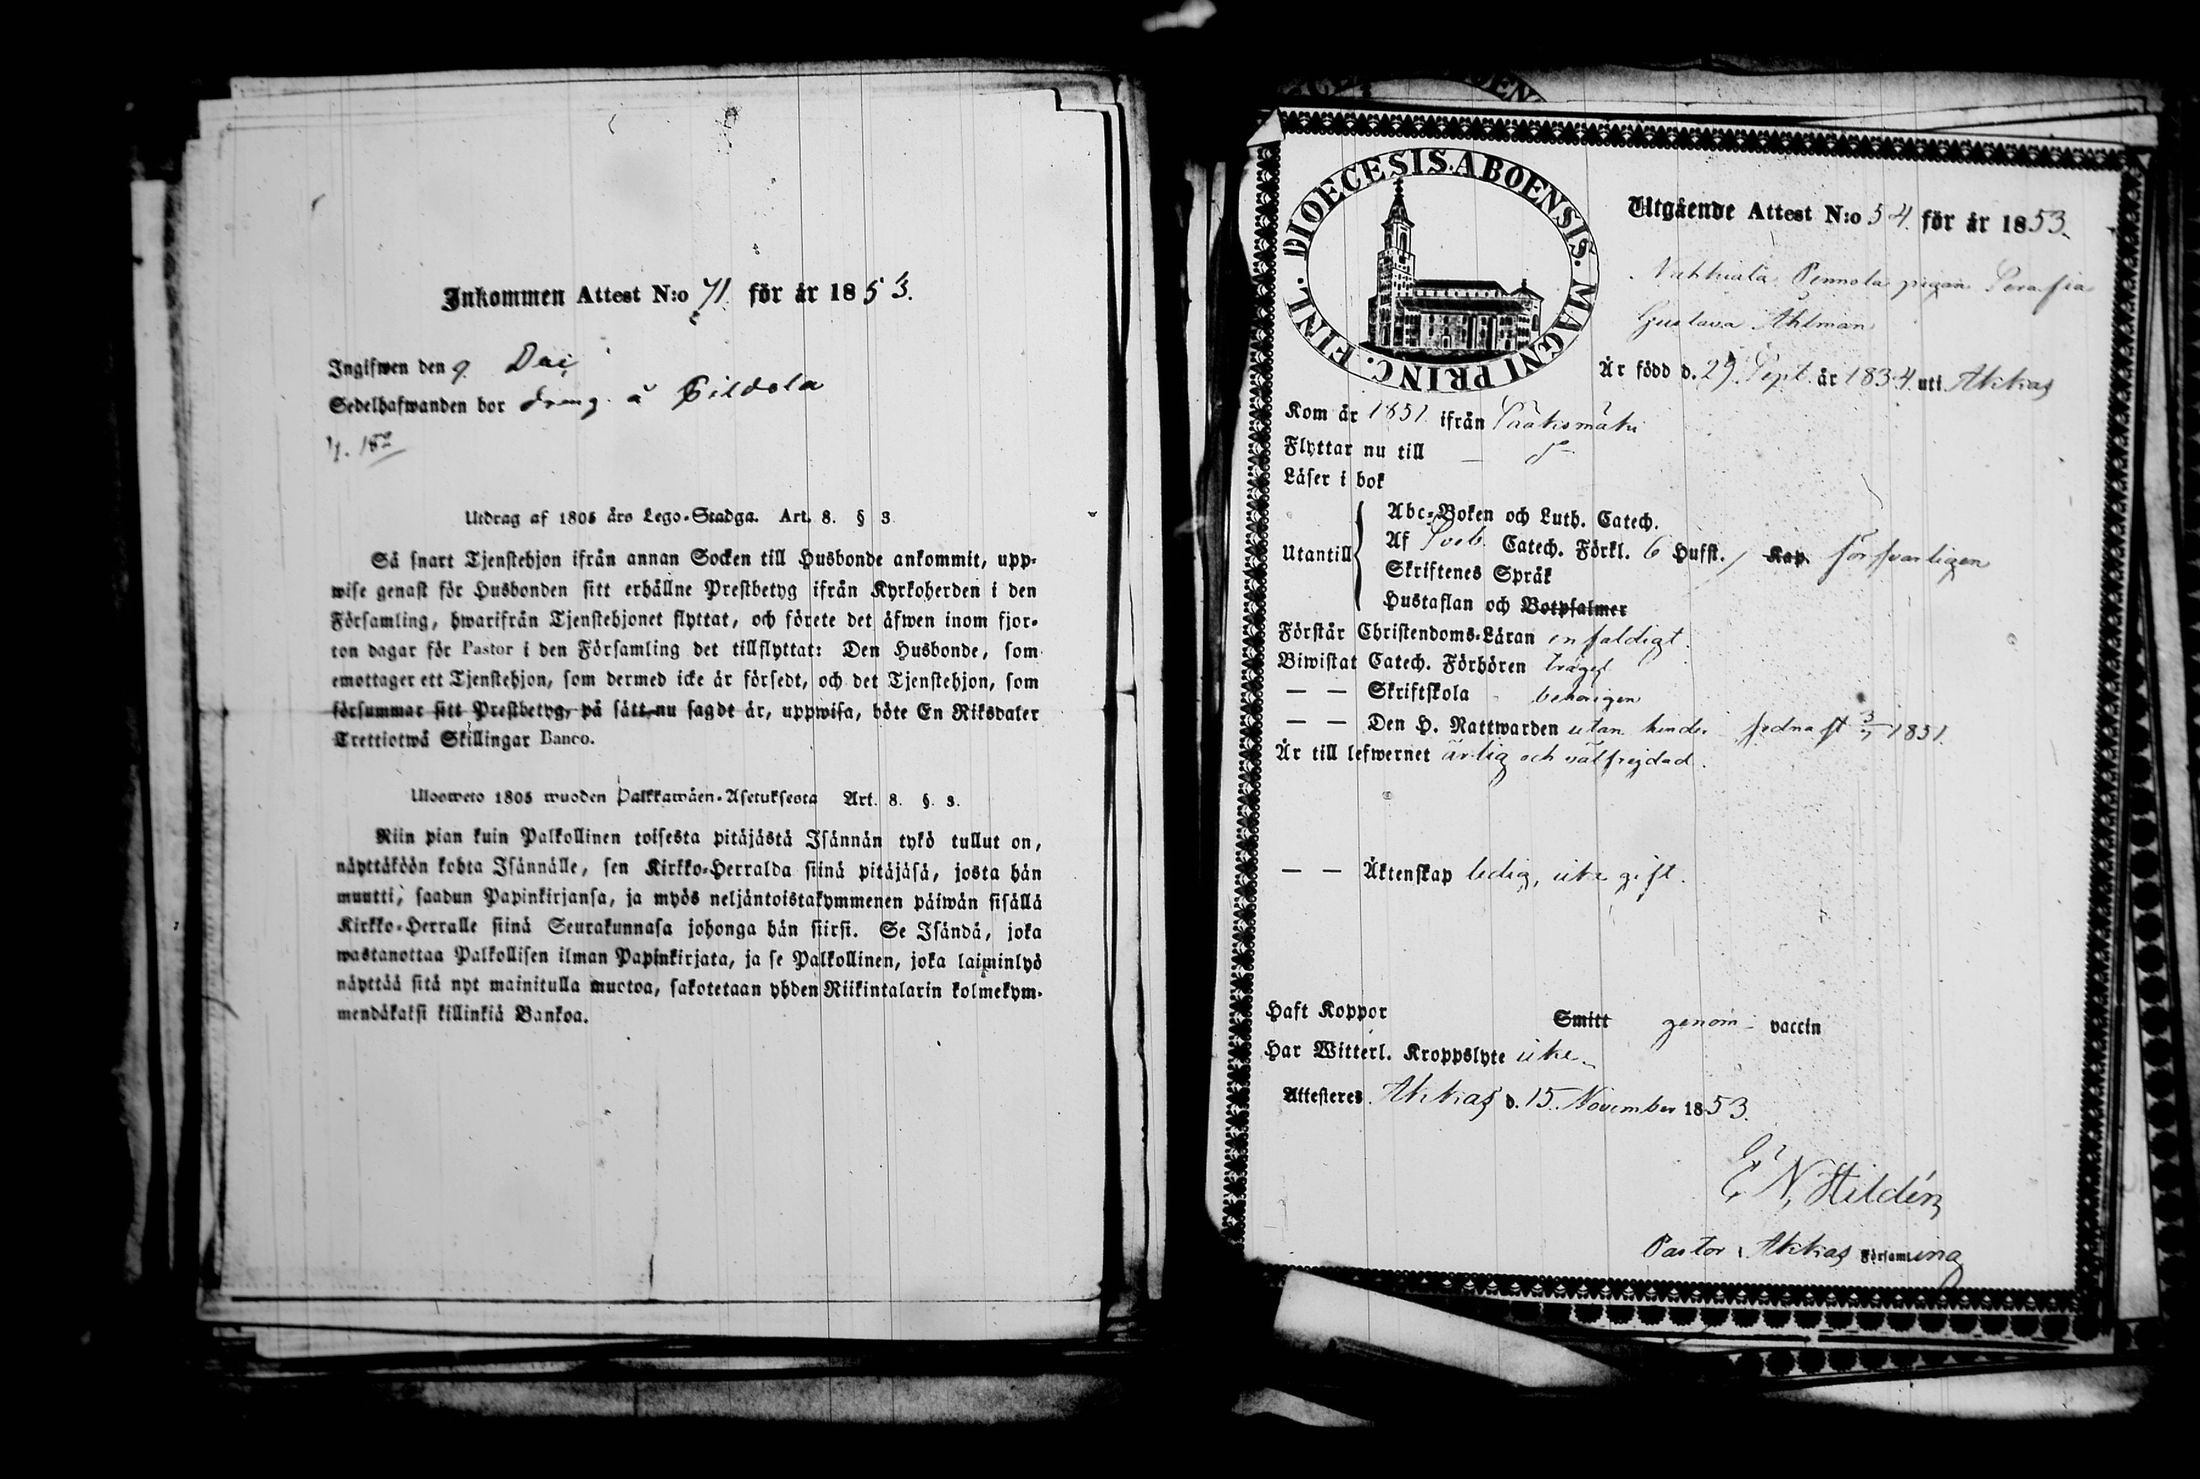 Inkommen Attest N:o 71. för år 1853.
Ingifwen den 9 Dec
Sedelhafwanden bor dreng. å
Utdrag af 1805 års Lego-Stadga. Art. 8. § 3
Så snart Tjenstehjon ifrån annan Socken till Husbonde ankommit, upp-
wise genast för Husbonden sitt erhållne Prestbetyg ifrån Kyrkoherden i den
Församling, hwarifrån Tjenstehjonet flyttat, och förete det äfwen inom fjor-
ton dagar för Pastor i den Församling det tillflyttat: Den Husbonde, som
emottager ett Tjenstehjon, som dermed icke är försedt, och det Tjenstehjon, som
försummar sitt Prestbetyg, på sätt nu sagdt är, uppwisa, böte En Riksdaler
Trettiotwå Skillingar Banco.
Ulosweto 1805 wuoden Palkkawäen-Asetuksesta Art. 8. §. 3.
Niin pian kuin Palkollinen toisesta pitäjästä Isännän tykö tullut on,
näyttäköön kohta Isännälle, sen Kirkko-Herralda siinä pitäjäsä, josta hän
muutti, saadun Papinkirjansa, ja myös neljäntoistakymmenen päiwän sisällä
Kirkko-Herralle siinä Seurakunnasa johonga hän siirsi. Se Isändä, joka
wastanottaa Palkollisen ilman Papinkirjata, ja se Palkollinen, joka laiminlyö
näyttää sitä nyt mainitulla muotoa, sakotetaan yhden Riikintalarin kolmekym-
mendäkaksi killinkiä Bankoa.
DIOECESIS. ABOENSIS. MAGNI PRINC. FINL.
Utgående Attest N:o 54. för år 1853.
Nahkiala Pennola pigan Serafia
Gustava Åhlman
Är född d. 29. Sept. år 1834. uti Akkas
Kom år 1851 ifrån Sääksmäki
Flyttar nu till
Läser i bok
Utantill
Abc-Boken och Luth. Catech.
Af Sveb. Catech. Förkl. 6 Hufst. / Kap. försvarligen
Skriftenes Språk
Hustaflan och Botpsalmer
Förstår Christendoms-Läran enfaldigt.
Biwistat Catech. Förhören trägit
— — Skriftskola behörigen
— — Den H. Nattwarden utan hinder sednast 1851.
Är till lefwernet ärlig och välfrejdad.
— — Äktenskap ledig, icke gift.
Haft Koppor Smitt genom vaccin
Har Witterl. Kroppslyte icke
Attesteres Akkas d. 15. November 1853.
E. N. Hildén
Pastor i Akkas Församling